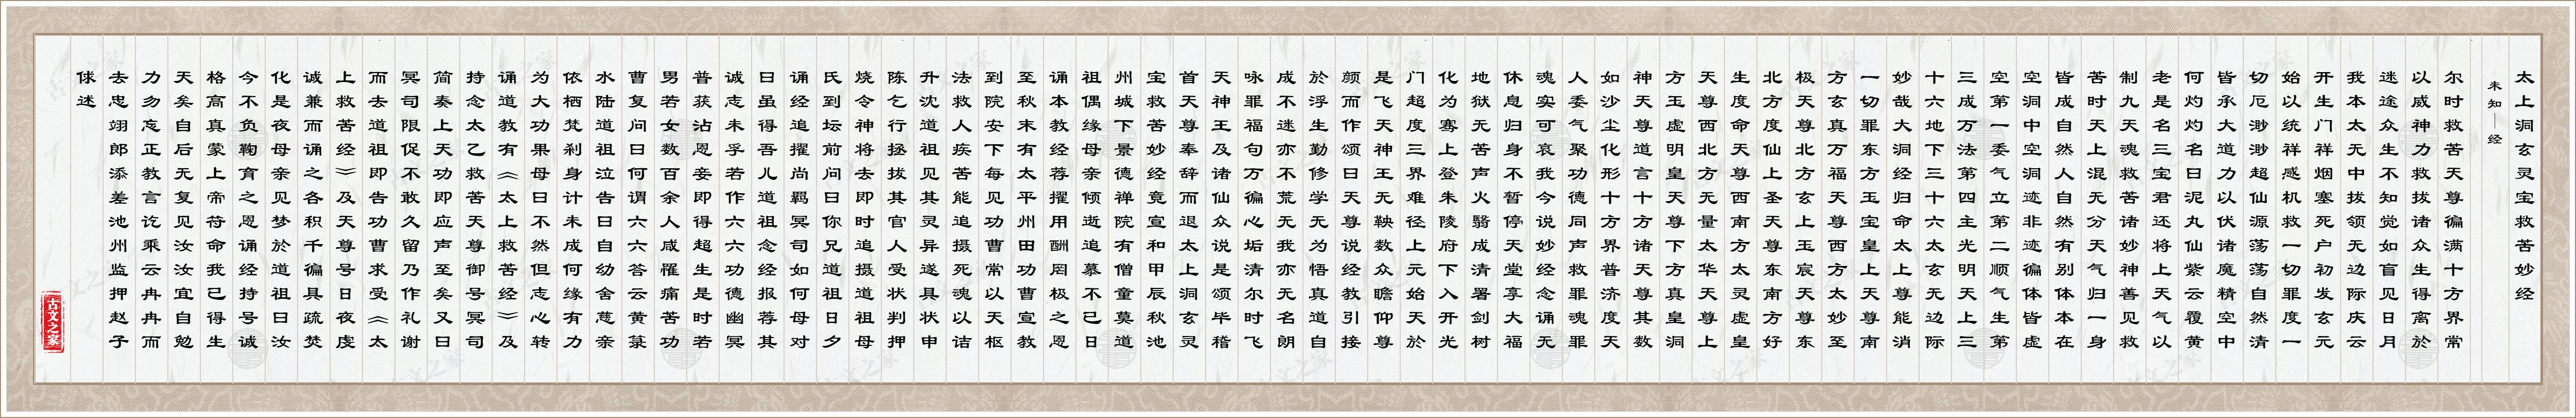 太上洞玄灵宝救苦妙经
未知—经
尔时救苦天尊徧满十方界常
以威神力救拔诸众生得离於
迷途众生不知觉如盲见日月
我本太无中拔领无边际庆云
开生门祥烟塞死户初发玄元
始以统祥感机救一切罪度一
切厄渺渺超仙源荡荡自然清
皆承大道力以伏诸魔精空中
何灼灼名曰泥丸仙紫云覆黄
老是名三宝君还将上天气以
制九天魂救苦诸妙神善见救
苦时天上混无分天气归一身
皆成自然人自然有别体本在
空洞中空洞迹非迹徧体皆虚
空第一委气立第二顺气生第
三成万法第四主光明天上三
十六地下三十六太玄无边际
妙哉大洞经归命太上尊能消
一切罪东方玉宝皇上天尊南
方玄真万福天尊西方太妙至
极天尊北方玄上玉宸天尊东
北方度仙上圣天尊东南方好
生度命天尊西南方太灵虚皇
天尊西北方无量太华天尊上
方玉虚明皇天尊下方真皇洞
神天尊道言十方诸天尊其数
如沙尘化形十方界普济度天
人委气聚功德同声救罪魂罪
魂实可哀我今说妙经念诵无
休息归身不暂停天堂享大福
地狱无苦声火翳成清署剑树
化为骞上登朱陵府下入开光
门超度三界难径上元始天於
是飞天神王无鞅数众瞻仰尊
颜而作颂曰天尊说经教引接
於浮生勤修学无为悟真道自
成不迷亦不荒无我亦无名朗
咏罪福句万徧心垢清尔时飞
天神王及诸仙众说是颂毕稽
首天尊奉辞而退太上洞玄灵
宝救苦妙经竟宣和甲辰秋池
州城下景德禅院有僧童莫道
祖偶缘母亲倾逝追慕不已日
诵本教经荐擢用酬罔极之恩
至秋末有太平州田功曹宣教
到院安下每见功曹常以天枢
法救人疾苦能追摄死魂以诘
升沈道祖见其灵异遂具状申
陈乞行拯拔其官人受状判押
烧令神将去即时追摄道祖母
氏到坛前问曰你兄道祖日夕
诵经追擢尚羁冥司如何母对
曰虽得吾儿道祖念经报荐其
诚志未孚若作六六功德幽冥
普获沾恩妾即得超生是时若
男若女数百余人咸罹痛苦功
曹复问曰何谓六六答云黄箓
水陆道祖泣告曰自幼舍慈亲
依栖梵刹身计未成何缘有力
为大功果母曰不然但志心转
诵道教有《太上救苦经》及
持念太乙救苦天尊御号冥司
简奏上天功即应声至矣又曰
冥司限促不敢久留乃作礼谢
而去道祖即告功曹求受《太
上救苦经》及天尊号日夜虔
诚兼而诵之各积千徧具疏焚
化是夜母亲见梦於道祖曰汝
今不负鞠育之恩诵经持号诚
格高真蒙上帝符命我已得生
天矣自后无复见汝汝宜自勉
力勿忘正教言讫乘云冉冉而
去忠翊郎添差池州监押赵子
俅述
古文之家